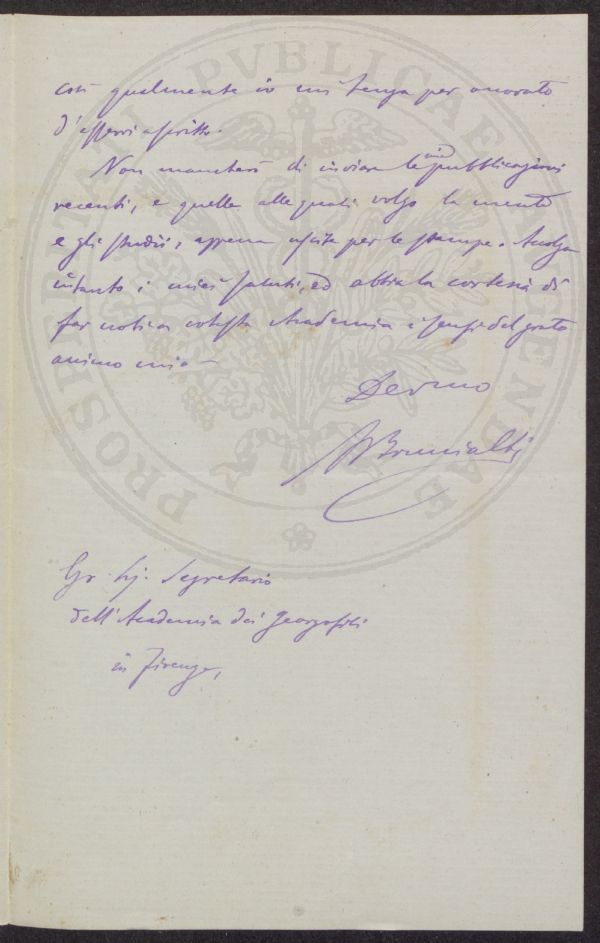 con qualmente io mi tenga per onorato
d'esservi ascritto.
Non mancherò di inviare le mie pubblicazioni
recenti, e quelle alle quali volgo la mente
e gli studii, appena uscite per le stampe. Accolga
intanto i miei saluti, ed abbia la cortesia di
far noti a cotesta Accademia i sensi del grato
animo mio –
Devmo
ABrunialti
Segretario
dell'Accademia dei Georgofili
in Firenze,
PROSPERITATI PVBLICAE AVGENDAE